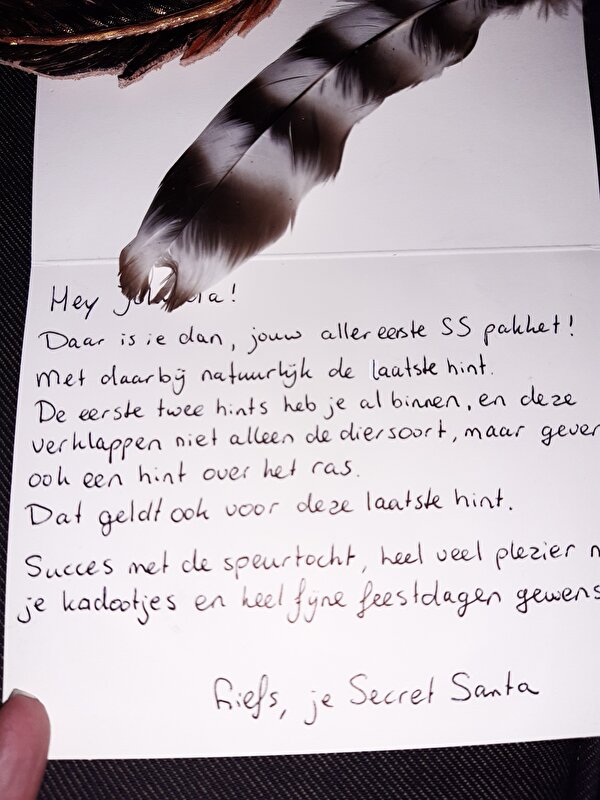 Hey
Daar is ie dan, jouw aller eerste SS pakket!
Met daarbij natuurlijk de laatste hint.
De eerste twee hints heb je al binnen, en deze
verklappen niet alleen de diersoort, maar geven
ook een hint over het ras.
Dat geldt ook voor deze laatste hint.
Succes met de speurtocht, heel veel plezier
je kadootjes en heel fijne feestdagen gewens
Liefs, je Secret Santa